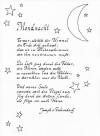 Mondnacht
Es war, als hätt' der Himmel
die Erde still geküßt,
daß sie im Blütenschimmer
von ihm nun träumen müßt.
Die Luft ging durch die Felder,
die Ähren wogten sacht,
es rauschten leis die Wälder,
so sternklar war die Nacht.
Und meine Seele spannte
weit ihre Flügel aus,
flog durch die stillen Lande,
als flöge sie nach Haus.
Joseph v. Eichendorff